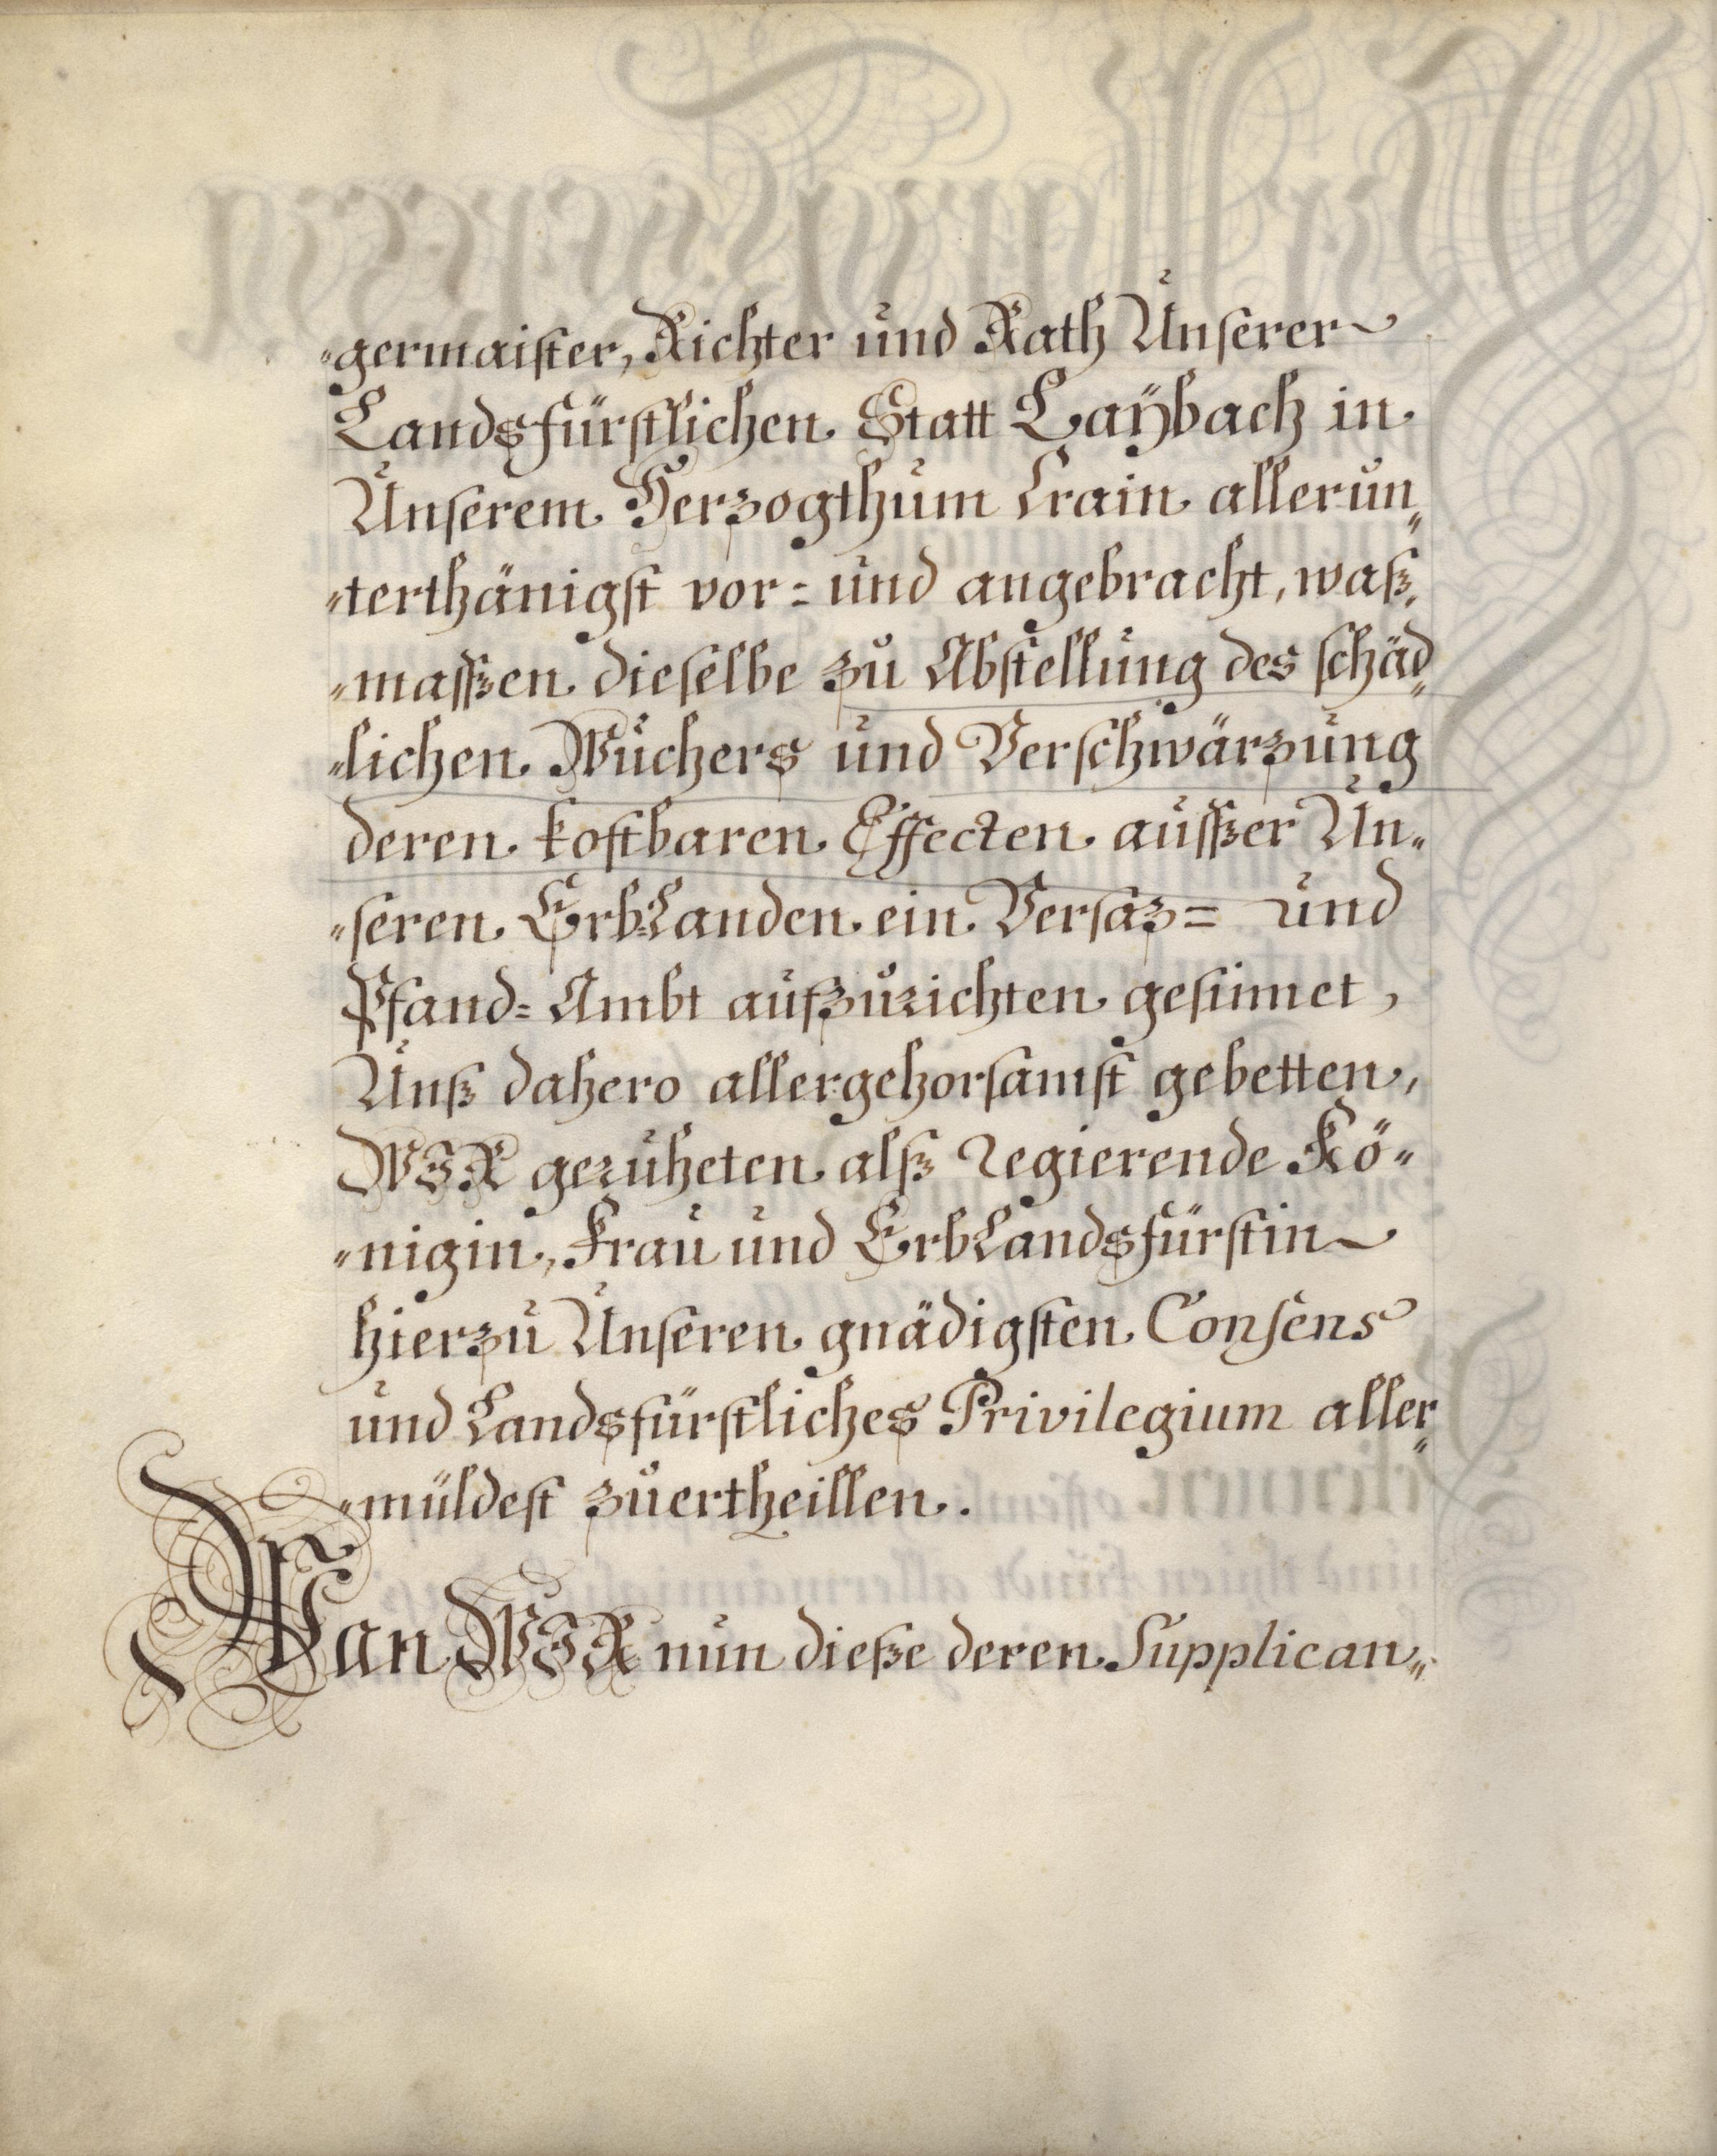 "germaister, Richter und Rath Unserer
Landsfürstlichen Statt Laÿbach in
Unserem Herzogthum Crain allerun„
"terthänigst vor= und angebracht, waß„
"massen dieselbe zu Abstellung des schäd„
"lichen Wuchers und Verschwärzung
deren kostbaren Effecten ausser Un„
"seren ErbLanden ein Versaz= und
Pfand=Ambt aufzurichten gesinnet,
Unß dahero allergehorsamst gebetten,
WIR geruheten alß Regierende Kö„
"nigin, Frau und ErbLandsfürstin
hierzu Unseren gnädigsten Consens
und Landsfürstliches Privilegium aller„
"müldest zuertheillen.
Wan WIR nun dieße deren Supplican„